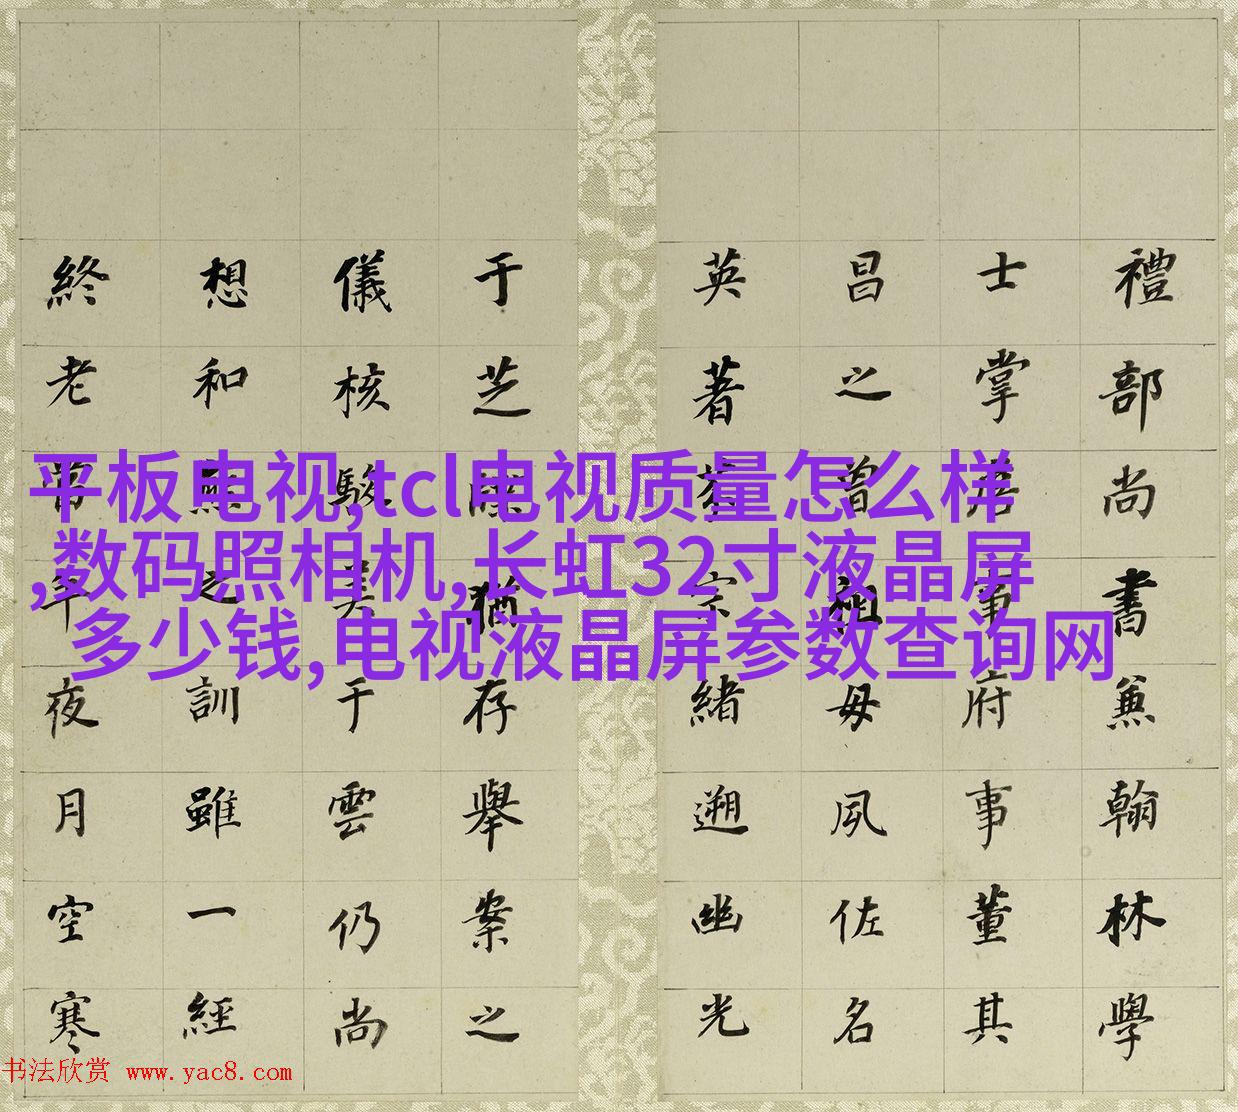 禮部尚書兼翰林學
士掌詹事府事董其
昌之曾祖母夙佐名
英著宗緒遡幽光
于芝猶存舉案之
儀核于雲仍尚
想和熊之訓雖一經
終老年夜月空寒
平板电视,tcl电视质量怎么样
,数码照相机,长虹32寸液晶屏
多少钱,电视液晶屏参数查询网
书法欣赏 www.yac8.com